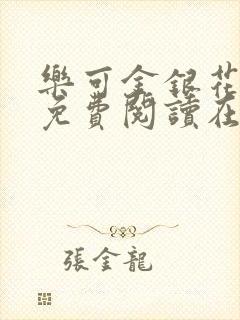 樂可金銀花
免費閱讀在
張金龍